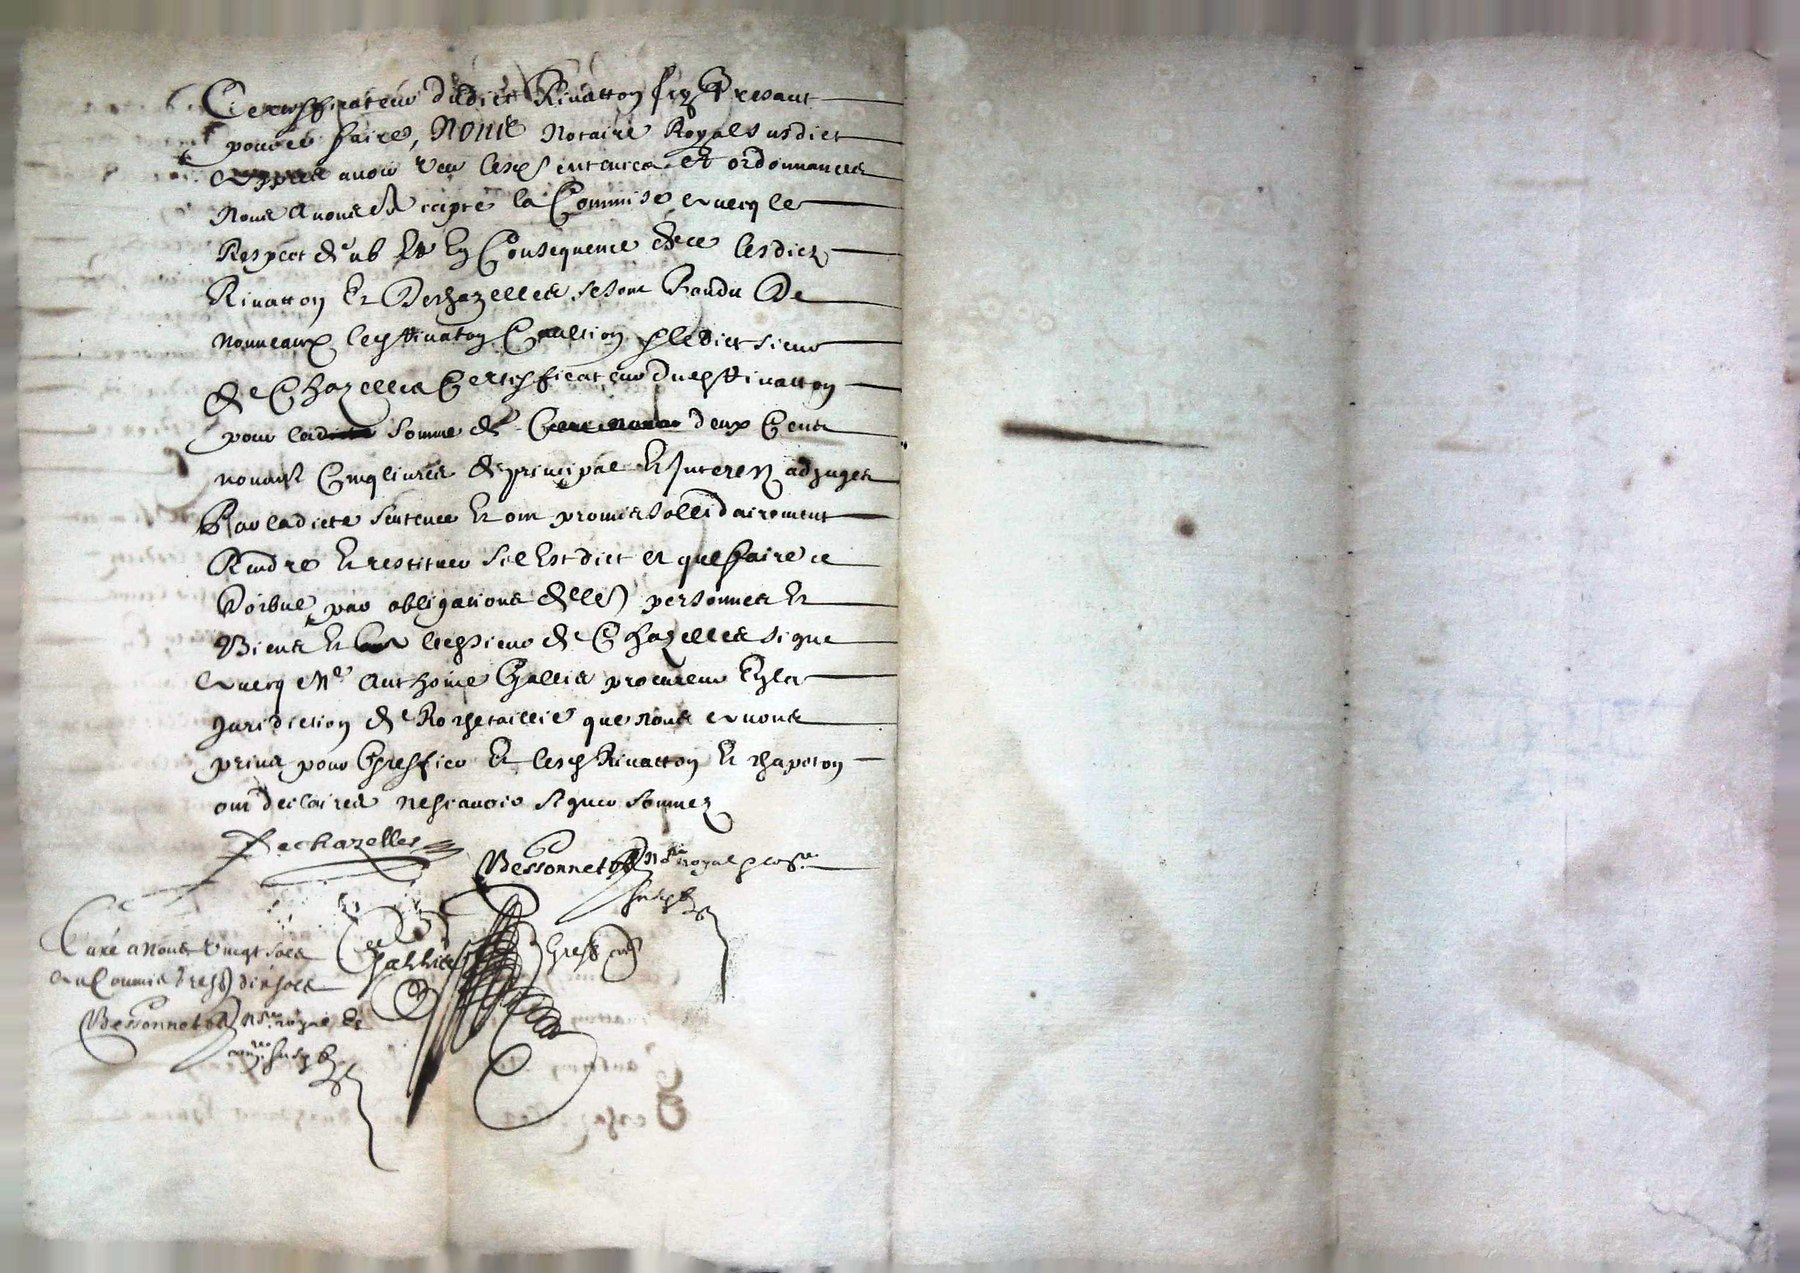 Certifficateur dudict Rivatton icy Present
pour ce faire, Nous Notaire Royal susdict
apres avoir veu lesd sentences et ordonnances
Nous avons accepté la Commise avecq le
Respect deub Et En Consequence de ce lesdicz
Rivatton Et Dechazelles se sont Randu De
nouveaux led Rivaton Caultion & ledict sieur
de Chazelles Certifficateur dud Rivatton
pour la somme de deux Cents
nonante Cinq livres de principal et Interestz adjuges
Par ladicte sentence Et ont promis sollidairement
Rendre Et restituer sil Est dict et que faire ce
Doibve par obligations de leurs personnes Et
Biens Et led sieur de Chazelles signe
avecq Me Anthoine Challies procureur En la
Juridiction de Rochetaillie que nous avons
prins pour Greffier Et lesd Rivatton Et chapoton
ont declaires ne scavoir signer sommez
Dechazelles
Bessonnet Nore royal
Challies Greff
Taxé a Nous vingt sols
au Commis Greff dix sols
Bessonnet Nore royal &